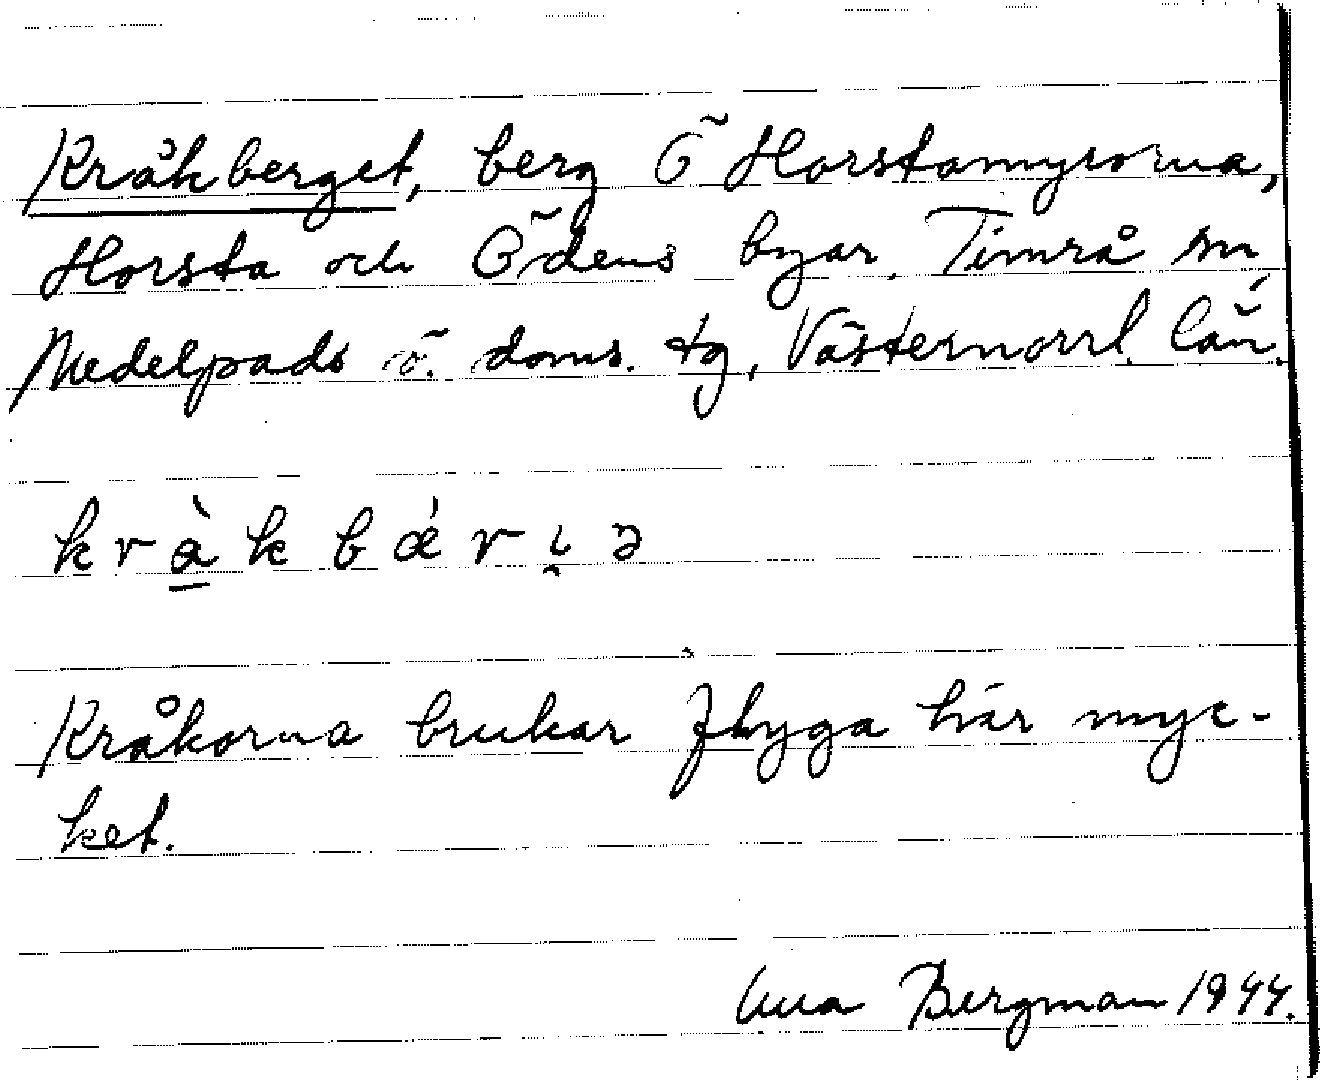 Kråkberget, berg Ö Horstamyrorna,
Horsta och Ödens byar, Timrå sn
Medelpads ö. doms. tg, Västernorrl. län.
k r à k b ǽ r i̯ ə
Kråkorna brukar flyga här myc-
ket.
Bergman 1944.